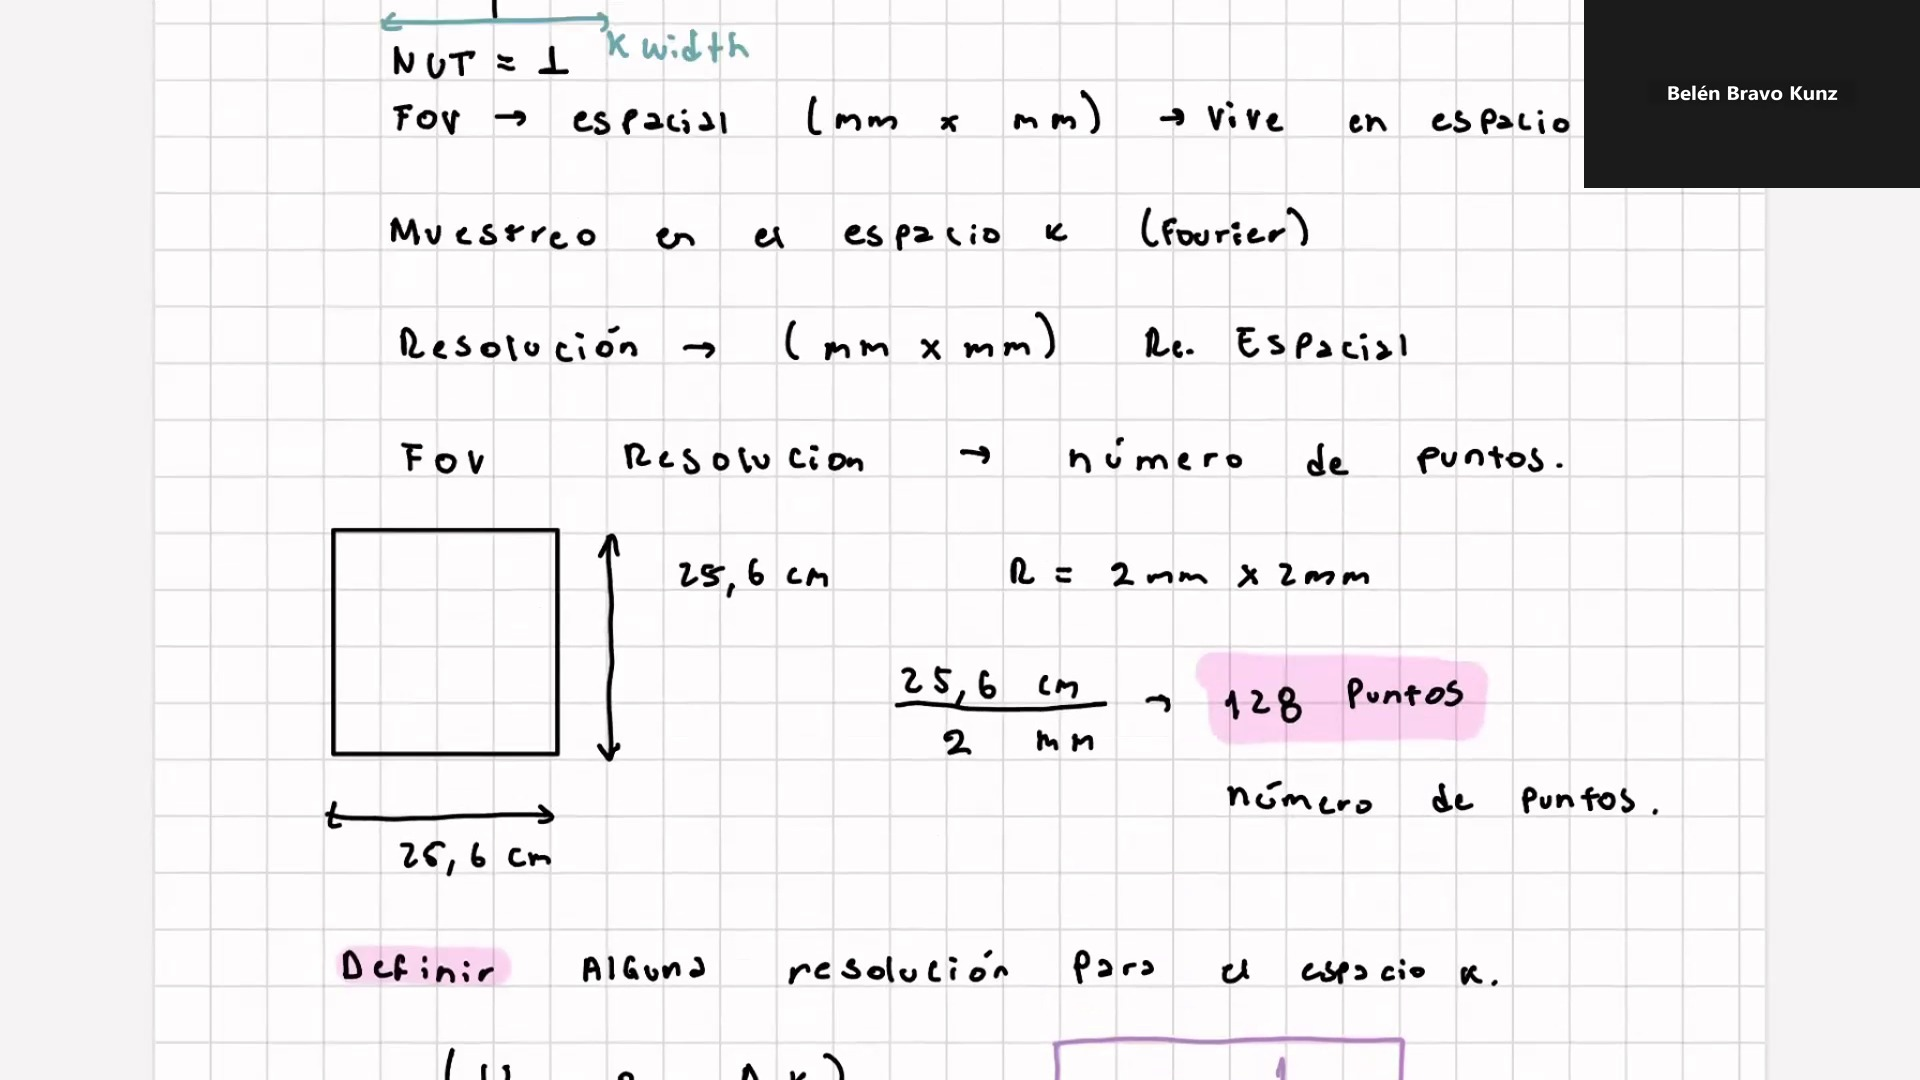 K width
NUT = 1
FOV → espacial (mm x mm) → vive en espacio
Belén Bravo Kunz
Muestreo en el espacio K (Fourier)
Resolución → (mm x mm) Re. Espacial
FOV Resolucion → número de puntos.
25,6 cm R = 2mm x 2mm
25,6 cm
2 mm
→ 128 Puntos
número de puntos.
25,6 cm
Definir Alguna resolución para el espacio K.